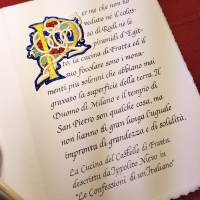 Per me che non ho
veduto nè il colos-
so di Rodi nè le
piramidi d'Egit-
to, la cucina di Fratta ed il
suo focolare sono i monu-
menti più solenni che abbiano mai
gravato la superficie della terra. Il
Duomo di Milano e il tempio di
San Pietro son qualche cosa, ma
non hanno di gran lunga l'uguale
impronta di grandezza e di solidità.
La Cucina del Castello di Fratta
descritta da Ippolito Nievo in
"Le Confessioni d'un Italiano"